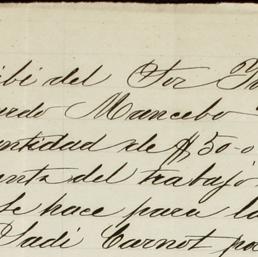 ibi del Sor
ardo Mancebo
antidad de $50-0
enta del trabajo
se hace para la
Sadi Carnot por